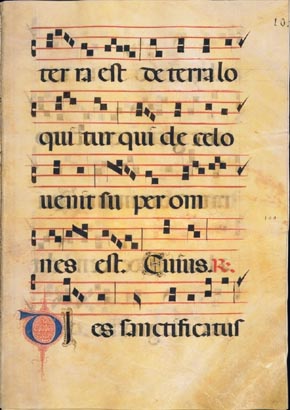 ter ra est de terra lo
qui tur qui de celo
uenit su per om
nes est. Cuius. R.
Dies sanctificatus